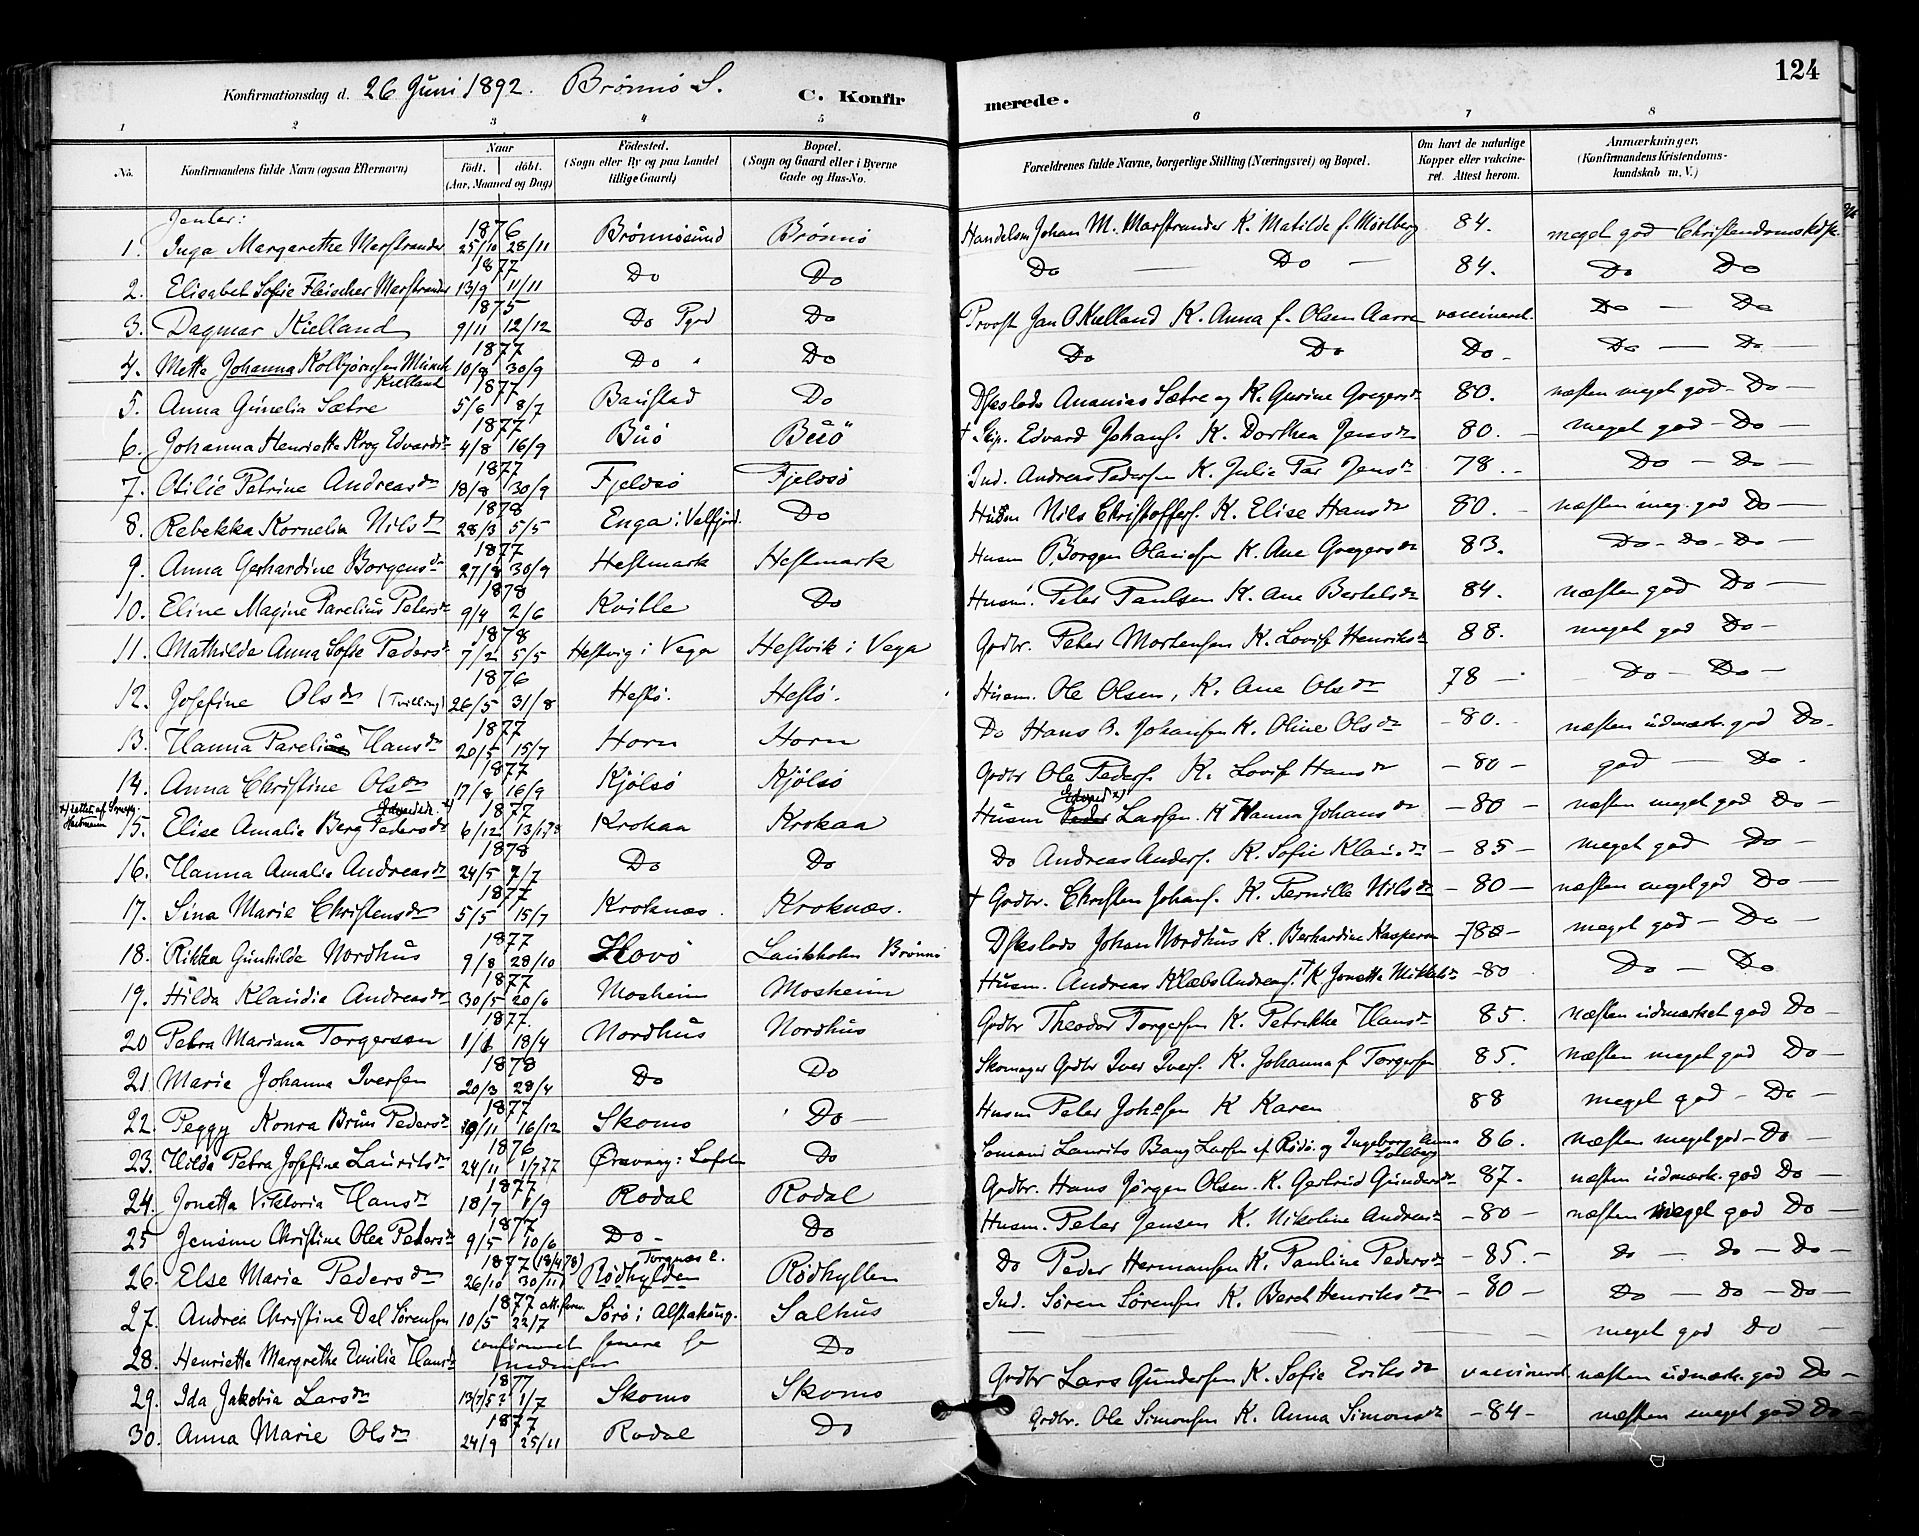 124
Konfirmationsdag d. 26 Juni 1892. Brönnö S. C. Konfirmerede.
1 2 3 4 5 6 7 8
No. Konfirmandens fulde Navn (ogsaa Efternavn) Naar födt. döbt. (Aar, Maaned og Dag) Födested. (Sogn eller By og paa Landet tillige Gaard) Bopæl. (Sogn og Gaard eller i Byerne Gade og Hus-No. Forældrenes fulde Navne, borgerlige Stilling (Næringsvei) og Bopæl. Om havt de naturlige Kopper eller vakcineret. Attest herom. Anmærkninger. (Konfirmandens Kristendomskundskab m. V.)
Jenter:
1. Inga Margarethe Marstrander 1876 25/10 28/11 Brönnösund Brönnö Handelsm Johan M. Marstrander K. Matilde f. 84. meget god Christendomskdsk.
2. Elisabet Sofie Fleischer Marstrander 1877 13/9 11/11 Do Do Do — Do — 84. Do Do
3. Dagmar Kielland 1875 9/11 12/12 Do Pgd Do Provst Jan O Kielland K. Anna f. Olsen Aarre vaccineret. Do — Do
4. Mette Johanna Kolbjørnsen Münch Kielland 1877 10/8 30/9 Do " Do Do Do Do - Do — Do —
5. Anna Gunelia Sætre 1877 5/6 8/7 Baustad Do Ananias Sætre og K. Gurine Gregersdr 80. næsten meget god - Do —
6. Johanna Henriette Krog Edvardsdr 1877 4/8 16/9 Buö Buö + Skip. Edvard Johans. K. Dorthea Jensdr 80. — meget god - Do —
7. Otilie Petrine Andreasdr 1877 18/8 30/9 Fjeldsö Fjeldsö Ind. Andreas Pedersen K. Julie Par Jensdr 78. - Do — Do —
8. Rebekka Kornelia Nilsdr 1878 28/3 5/5 Enga i Velfjord. Do Husm Nils Christoffers. K. Elise Hansdr 80. - næsten meg. god Do —
9. Anna Gerhardine Borgensdr 1877 27/8 30/9 Hestmark Hestmark Husm Borgen K. Ane Gregersdr 83. Do - Do - Do —
10. Eline Magine Parelius Petersdr 1878 9/4 2/6 Kville Do Husm. Peter Paulsen K. Ane Bertelsdr 84. næsten god Do —
11. Mathilde Anna Sofie Pedersdr 1878 7/2 5/5 Hestvig i Vega Hestvik i Vega Grdbr. Peter Mortensen K. Lovise Henriksdr 88. meget god Do -
12. Josefine Olsdr (Tvilling) 1876 26/5 31/8 Hestö. Hestö. Husm. Ole Olsen, K. Ane Olsdr 78 — Do - Do -
13. Hanna Hansdr 1877 20/5 15/7 Horn Horn Do Hans B. Johansen K. Oline Olsdr -80.- næsten udmærk. god Do.
14. Anna Christine Olsdr 1877 17/8 16/9 Kjölsö Kjölsö Grdbr Ole Peders. K. Lovise Hansdr -80- god — Do.
15. Elise Amalie Berg Pedersdr 1877 6/12 13/1 78 Krokaa Krokaa Husm Edvard Larsen. K Hanna Johansdr -80 næsten meget god Do —
16. Hanna Amalie Andreasdr 1878 24/5 7/7 Do Do Do Andreas Anders. K. Sofie -85- meget god Do —
17. Sina Marie Christensdr 1877 5/5 15/7 Kroknæs. Kroknæs. + Grdbr. Christen Johans. K. Pernille Nilsdr -80- næsten meget god Do —
18. Rikka Gunhilde Nordhus 1877 9/8 28/10 Havö Brönnö Johan Nordhus K. Berhardine -78- meget god — Do —
19. Hilda Klaudia Andreasdr 1877 30/5 20/6 Mosheim Mosheim Husm. Andreas Klæbo Andreas. K Jonetta -80 Do — Do
20 Petra Mariana Torgersen 1877. 1/1 18/4 Nordhus Nordhus Grdbr Theodor Torgersen K. Petrikke Hansdr 85. næsten udmærket god Do —
21. Marie Johanna Iversen 1878 20/3 28/4 Do Do Skomager Grdbr Iver Ivers. K. Johanna f Torgersen 85. næsten meget god Do —
22. Peggy Konra Brun Pedersdr 1877 19/11 16/12 Skomo Do — Husm Peter K Karen 88 meget god - Do —
23. Hilda Petra Josefine Lauritsdr 1876 24/11 1/7 77 i Lofoten Do Laurits Bang Larsen af Rödö og Ingeborg Anna 86. næsten meget god - Do —
24. Jonetta Viktoria Hansdr 1877 18/7 1/9 Rodal Rodal Grdbr. Hans Jørgen Olsen. K. Gertrud Gundersdr 87. næsten udmærk. god Do —
25 Jensine Christine Olea Petersdr 1877 9/5 10/6 Do - Do Husm. Peter Jensen K. Nikoline Andreasdr -80- næsten meget god Do —
26. Else Marie Pedersdr 1877 (18/4 78) 26/10 30/11 Rödhylden Torgnæs Rødhyllen Do Peder Hermansen K. Pauline Pedersdr -85.- Do — Do — Do —
27. Andrea Christine Dal Sørensen 1877 10/5 22/7 Sørö i Alstahaug. Salhus Ind. Søren Sørensen K. Beret Henriksdr -80- Do — Do — Do —
28. Henriette Margrethe Emilie Hansdr confirmeret senere se nedenfor Do — — — — meget god Do —
29. Ida Jakobia Larsdr 1877 1/7 Skomo Skomo Grdbr Lars Gundersen K. Sofie Eriksdr vaccineret næsten udmærk. god Do —
30. Anna Marie Olsdr 1877 24/9 25/11 Rodal Do Grdbr. Ole Simonsen K. Anna Simonsdr -84- næsten meget god Do —